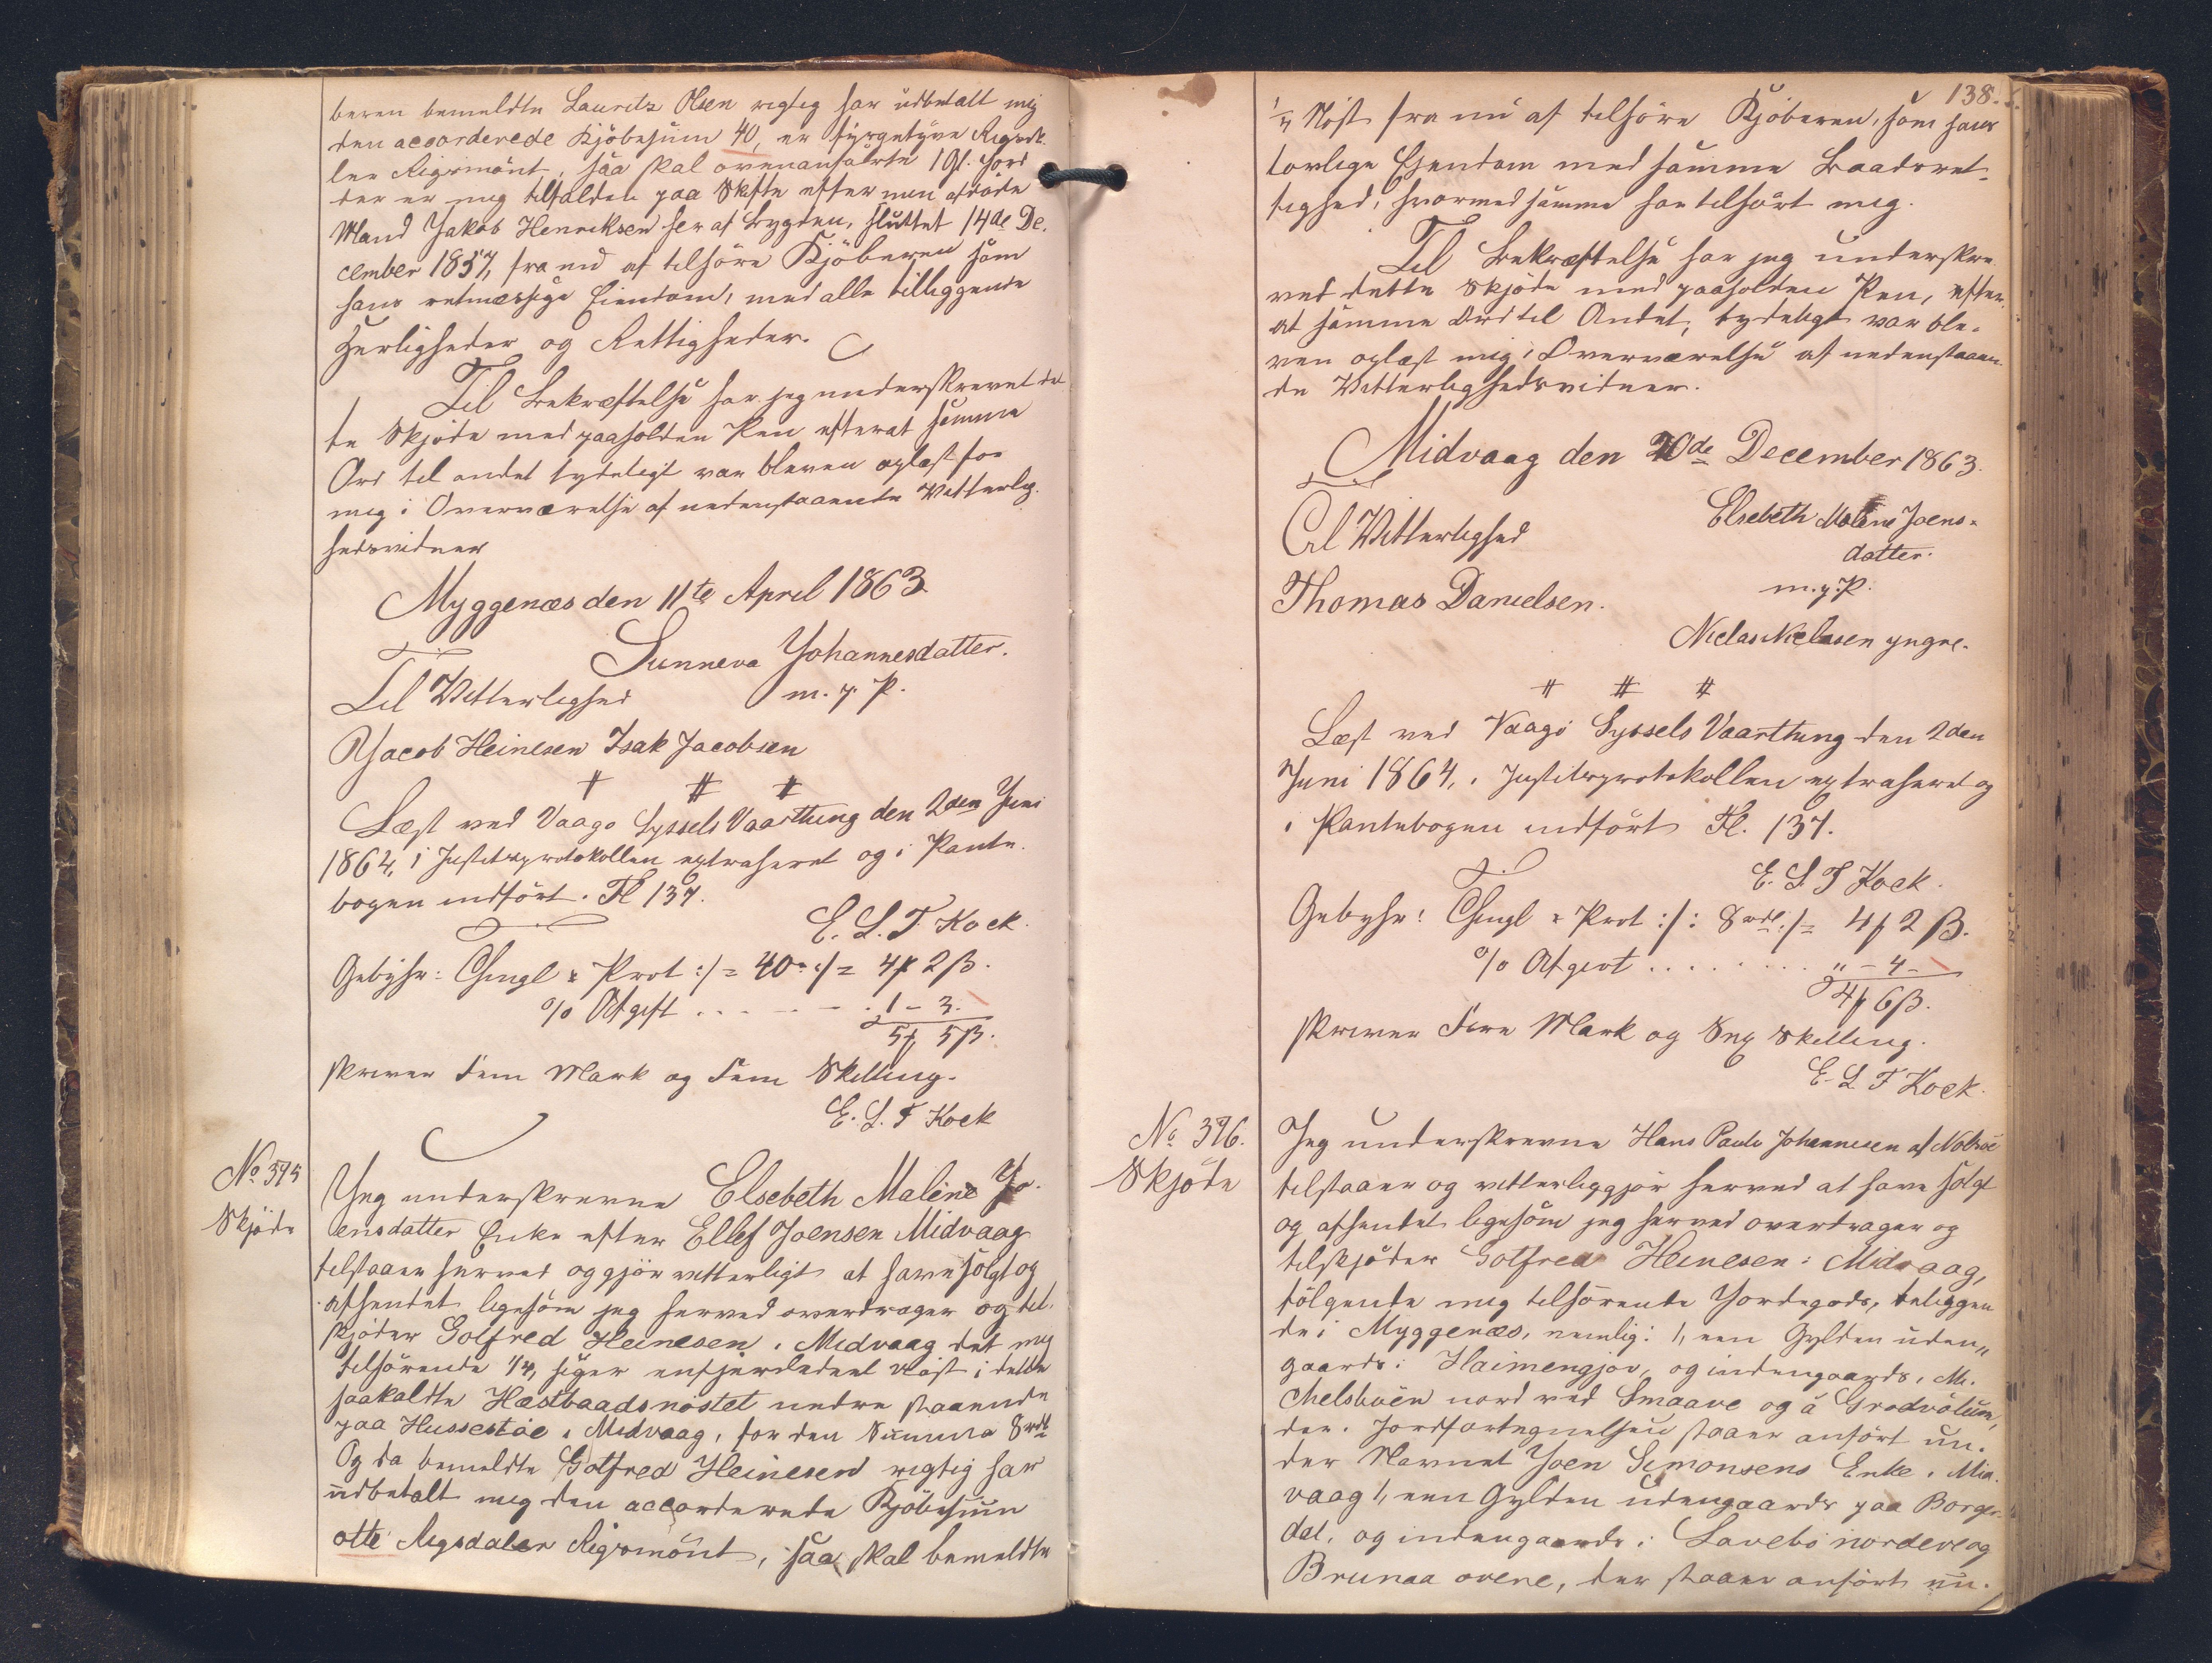 beren bemeldte Lauritz Olsen rigtig har udbetalt mig
den accorderede Kjöbesum 40, er fyrgetyve Rigsda-
ler Rigsmönt, saa skal ovenanførte 1 Gl. Jord
der er mig tilfalden paa Skifte efter min afdöde
Mand Jakob Henriksen her af Bygden, sluttet 14de De-
cember 1857, fra nu af tilhöre Kjöberen som
hans retmæssige Eiendom, med alle tilliggende
Herligheder og Rettigheder.
Til Bekræftelse har jeg underskrevet det-
te Skjöde med paaholden Pen efterat samme
Ord til andet tydeligt var bleven oplæst for
mig i Overværelse af nedenstaaende Vitterlig-
hedsvidner
Myggenæs den 11te April 1863.
Sunneva Johannesdatter.
Til Vitterlighed m. p. P.
Jacob Heinesen Isak Jacobsen
Læst ved Vaagö Syssels Vaarthing den 2den Juni
1864, i Justitsprotokollen extraheret og i Pante-
bogen indfört. Fl 137.
E. L. T. Kock.
Gebyhr: Thingl & Prot :/= 40rd :/= 4 ℳ 2 β.
% Afgift . . . . . . 1 - 3.
5 ℳ 5 β.
skriver Fem Mark og Fem Skilling.
E. L. T Kock
No 395
Skjöde
Jeg underskrevne Elsebeth Malene Jo-
ensdatter Enke efter Ellef Joensen Midvaag
tilstaaer herved og gjör vitterligt at have solgt og
afhendet ligesom jeg herved overdrager og til-
skjöder Golfred Heinesen i Midvaag det mig
tilhörende 1/4, siger enfjerdedeel Nöst i dette
saakaldte Hæstbaadsnöstet nedre staaende
paa Hussestöe i Midvaag, for den Summa 8 rdl
Og da bemeldte Golfred Heinesen rigtig har
udbetalt mig den accorderede Kjöbesum
otte Rigsdaler Rigsmönt, saa skal bemeldte
138.
1/4 Nöst fra nu af tilhöre Kjöberen, som hans
lovlige Eiendom med samme Baadsret-
tighed, hvormed samme har tilhört mig.
Til Bekræftelse har jeg underskre-
vet dette Skjöde med paaholden Pen, efter-
at samme Ord til Andet, tydeligt var ble-
ven oplæst mig i Overværelse af nedenstaaen-
de Vitterlighedsvidner.
Midvaag den 20de December 1863.
Elsebeth Malene Joens-
datter.
Til Vitterlighed
m. p. P.
Thomas Danielsen.
Niclas Nielasen yngre.
Læst ved Vaagö Syssels Vaarthing den 2den
Juni 1864, i Justitsprotokollen extraheret og
i Pantebogen indfört Fl. 137.
E. L. T Kock.
Gebyhr: Thingl & Prot :/: 8 rdl :/= 4 ℳ 2 β.
% Afgivt . . . . . . . . . " - 4 -
4 ℳ 6 β.
skriver Fire Mark og Sex Skilling.
E. L. T Kock.
No 396.
Skjöde
Jeg underskrevne Hans Paule Johannesen af Nolsöe
tilstaaer og vitterliggjör herved at have solgt
og afhendet ligesom jeg herved overdrager og
tilskjöder Golfred Heinesen i Midvaag,
fölgende mig tilhörende Jordegods, beliggen-
de i Myggenæs, nemlig: 1, een Gylden uden-
gaards i Haimengjov, og indengaards, Mi-
chelsböen nord ved Smaave og á Grodvölum,
der i Jordfortegnelsen staaer anfört un-
der Navnet Joen Simonsens Enke i Mid-
vaag 1, een Gylden udengaards paa Borgar-
dal, og indengaards i Lavebö nordere og
Brunaa övere, der staaer anfört un-